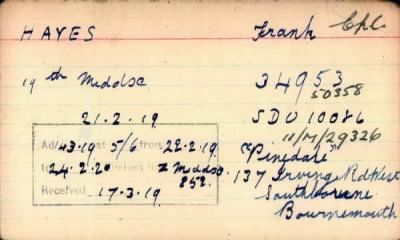 HAYES Frank Cpl
19th Middsx 34953
50358
21.2.19 SDU 10086
11/M/29326
Ad 43.19 at 5/6 from 22.2.19 "Pinedale"
to 24.2.20 2 Middsx. 137 Irving Rd West
852. Southbourne
Received 17.3.19 Bournemouth